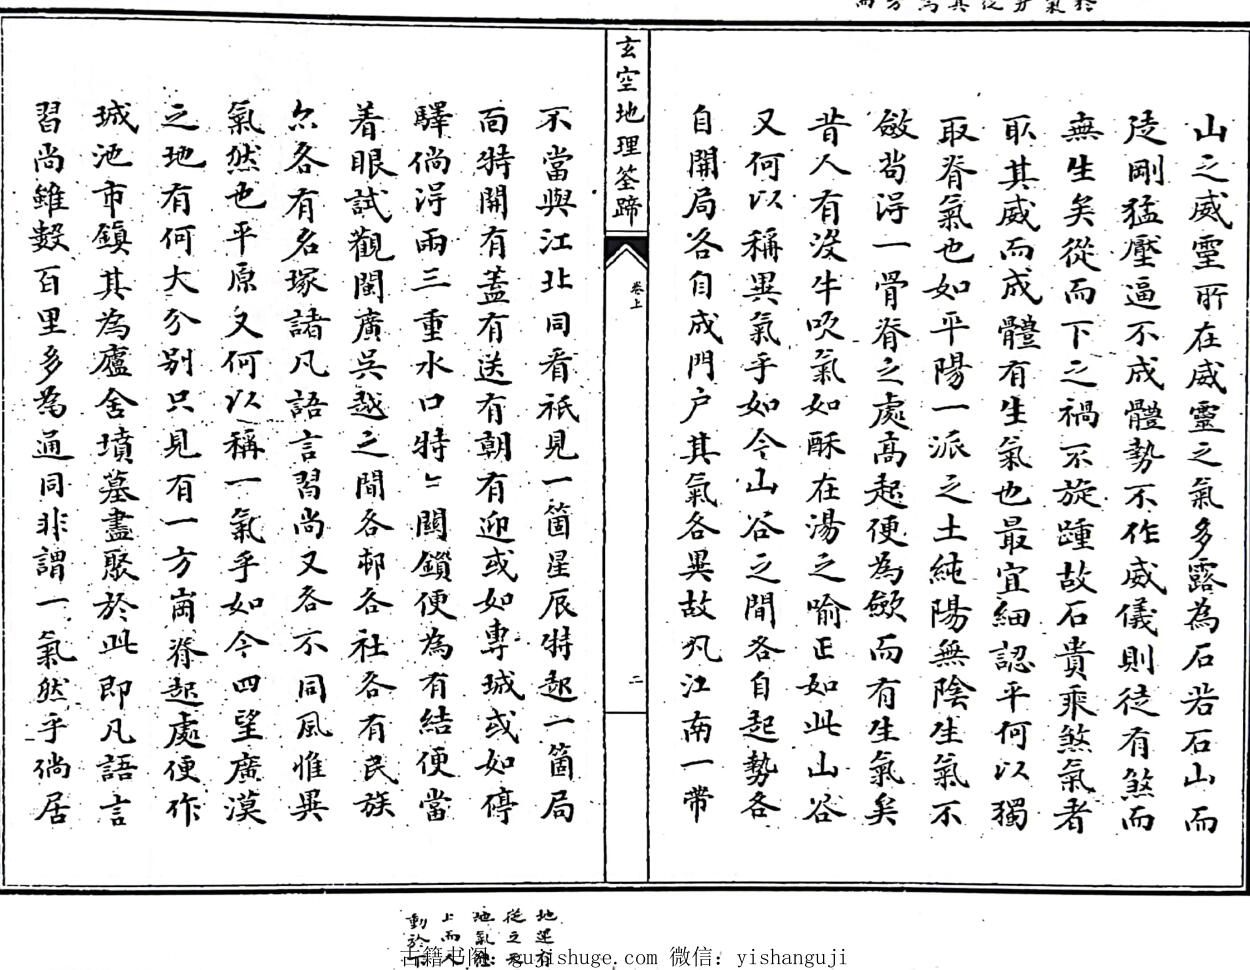 山之威靈所在威靈之氣多露為石若石山而
陡剛猛壓逼不成體勢不作威儀則徒有煞而
無生矣從而下之禍不旋踵故石貴乘煞氣者
取其威而成體有生氣也最宜細認平何以獨
取脊氣也如平陽一派之土純陽無陰生氣不
斂茍淂一骨脊之處高起便為歛而有生氣矣
昔人有沒牛吹氣如酥在湯之喻正如此山谷
又何以稱異氣乎如今山谷之間各自起勢各
自開局各自成門户其氣各異故凡江南一帶
玄空地理筌蹄
卷上
二
不當與江北同看祇見一箇星辰特起一箇局
面特開有蓋有送有朝有迎或如專城或如停
驛倘淂兩三重水口特〻關鎖便為有結便當
着眼試觀閩廣吳越之間各邨各社各有民族
尓各有名塚諸凡語言習尚又各不同風惟異
氣然也平原又何以稱一氣乎如今四望廣漠
之地有何大分別只見有一方崗脊起處便作
城池市鎮其為廬舍墳墓盡聚於此即凡語言
習尚雖數百里多為通同非謂一氣然乎倘居
地運有
從之天
地氣
上而人
動於下
古籍书阁：gujishuge.com 微信：yishanguji